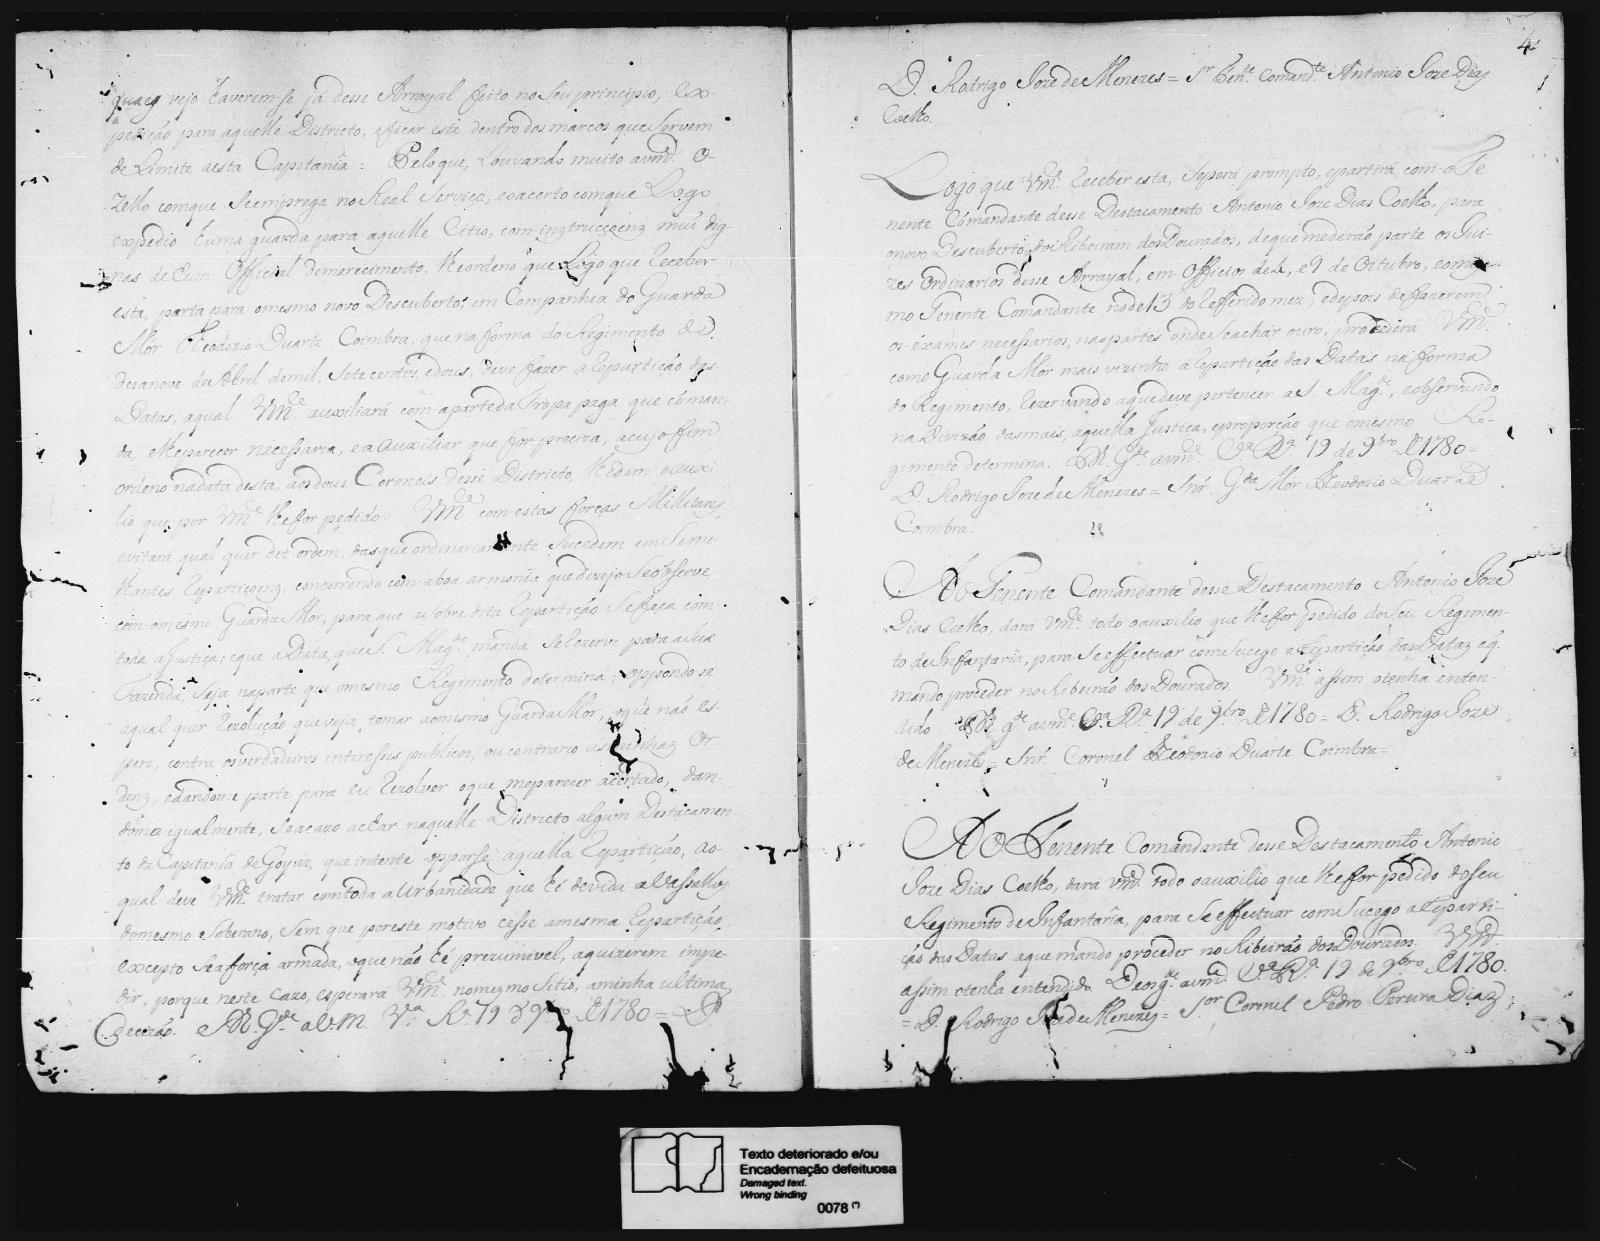 quaes vejo haverem-se já desse Arrayal feito no seu principio, ex-
pedição para aquelle Districto, e ficar este dentro dos marcos que servem
de Limite desta Capitania: Pelo que, Louvando muito a vm.ce o
Zello com que se emprega no Real Serviço, e o acerto com que Logo
expedio huma guarda para aquelle Citio, com instrucçoens mui dig-
nas de hum Official de merecimento, lhe ordeno que Logo que receber
esta, parta para o mesmo novo Descuberto, em Companhia do Guarda
Mor Theodozio Duarte Coimbra, que na forma do Regimento de
dezanove de Abril de mil, sete centos, e dous, deve fazer a repartição das
Datas, a qual Vm.ce auxiliará com a parte da Tropa paga que coman-
da, e lhe parecer necessaria, e a Auxiliar que for preciza, a cujo fim
ordeno na data desta, aos dous Coroneis desse Districto, lhe dem o auxi-
lio que por Vm.ce lhe for pedido. Vm.ce com estas forças Militares
evitará qual quer dez ordem, das que ordinariamente sucedem em seme-
lhantes repartiçoens, concorrendo com a boa armonia que dezejo se observe
com o mesmo Guarda Mor, para que a sobre dita repartição se faça com
toda a justiça; e que a Data, que S. Mag.de manda se rezerve para a sua
Fazenda, seja na parte que o mesmo Regimento determina; oppondo-se
a qual quer rezolução que veja tomar ao mesmo Guarda Mor, o que não es-
pero, contra os verdadeiros interesses publicos, ou contrario as minhas or-
dens, e dandome parte para eu rezolver o que me parecer acertado, dan-
dôma igualmente, se acazo achar naquelle Districto algum Destacamen-
to da Capitania de Goyaz, que intente opporse aquella repartição, ao
qual deve Vm.ce tratar com toda a Urbanidade que hé devida a Vassallos
do mesmo Soberano, sem que por este motivo cesse a mesma repartição
excepto se a força armada, o que não hé prezumivel, a quizerem impe-
dir, porque neste cazo, esperará Vm.ce no mesmo Sitio, a minha ultima
Decizão. D.s G.de a V.M. V.a R.a 19 de 9bro de 1780 = D.
4
D. Rodrigo Joze de Menezes = S.r Ten.te Comand.te Antonio Joze Dias
Coelho.
Logo que Vm.ce receber esta, se porá prompto, e partirá com o Te
nente Comandante desse Destacamento Antonio Joze Dias Coelho, para
o novo Descuberto do Ribeiram dos Dourados, de que me derão parte os Jui-
zes Ordinarios desse Arrayal, em Officios de 2, e 9 de Outubro, e o mes-
mo Tenente Comandante no de 13 do referido mez; e depois de fazerem
os exames necessarios, nas partes onde se achar ouro, procederá Vm.ce
como Guarda Mor mais vizinho a repartição das Datas na forma
do Regimento, rezervando a que deve pertencer a S. Mag.de, e observando
na Divizão das mais, aquella Justiça, e proporção que o mesmo Re-
gimento determina. D.s G.de a vm.ce V.a R.a 19 de 9bro de 1780 =
D. Rodrigo Joze de Menezes = Snr. G.da Mor Theodozio Duarte
Coimbra.
Ao Tenente Comandante desse Destacamento Antonio Joze
Dias Coelho, dará vm.ce todo o auxilio que lhe for pedido do seu Regimen-
to de Infantaria, para se effectuar com sucego a repartição das Datas a q.
mando proceder no Ribeirão dos Dourados. Vm.ce assim o tenha enten-
dido. D.s g.de a vm.ce V.a R.a 19 de 9bro de 1780 = D. Rodrigo Joze
de Menezes = Snr. Coronel Theodozio Duarte Coimbra =
Ao Tenente Comandante desse Destacamento Antonio
Joze Dias Coelho, dará vm.ce todo o auxilio que lhe for pedido do seu
Regimento de Infantaria, para se effectuar com sucego a reparti-
ção das Datas a que mando proceder no Ribeirão dos Dourados. Vm.ce
assim o tenha entendido. Deos g.de a vm.ce V.a R.a 19 de 9bro de 1780.
= D. Rodrigo Joze de Menezes = S.or Coronel Pedro Pereira Diaz
Texto deteriorado e/ou
Encadernação defeituosa
Damaged text.
Wrong binding
0078